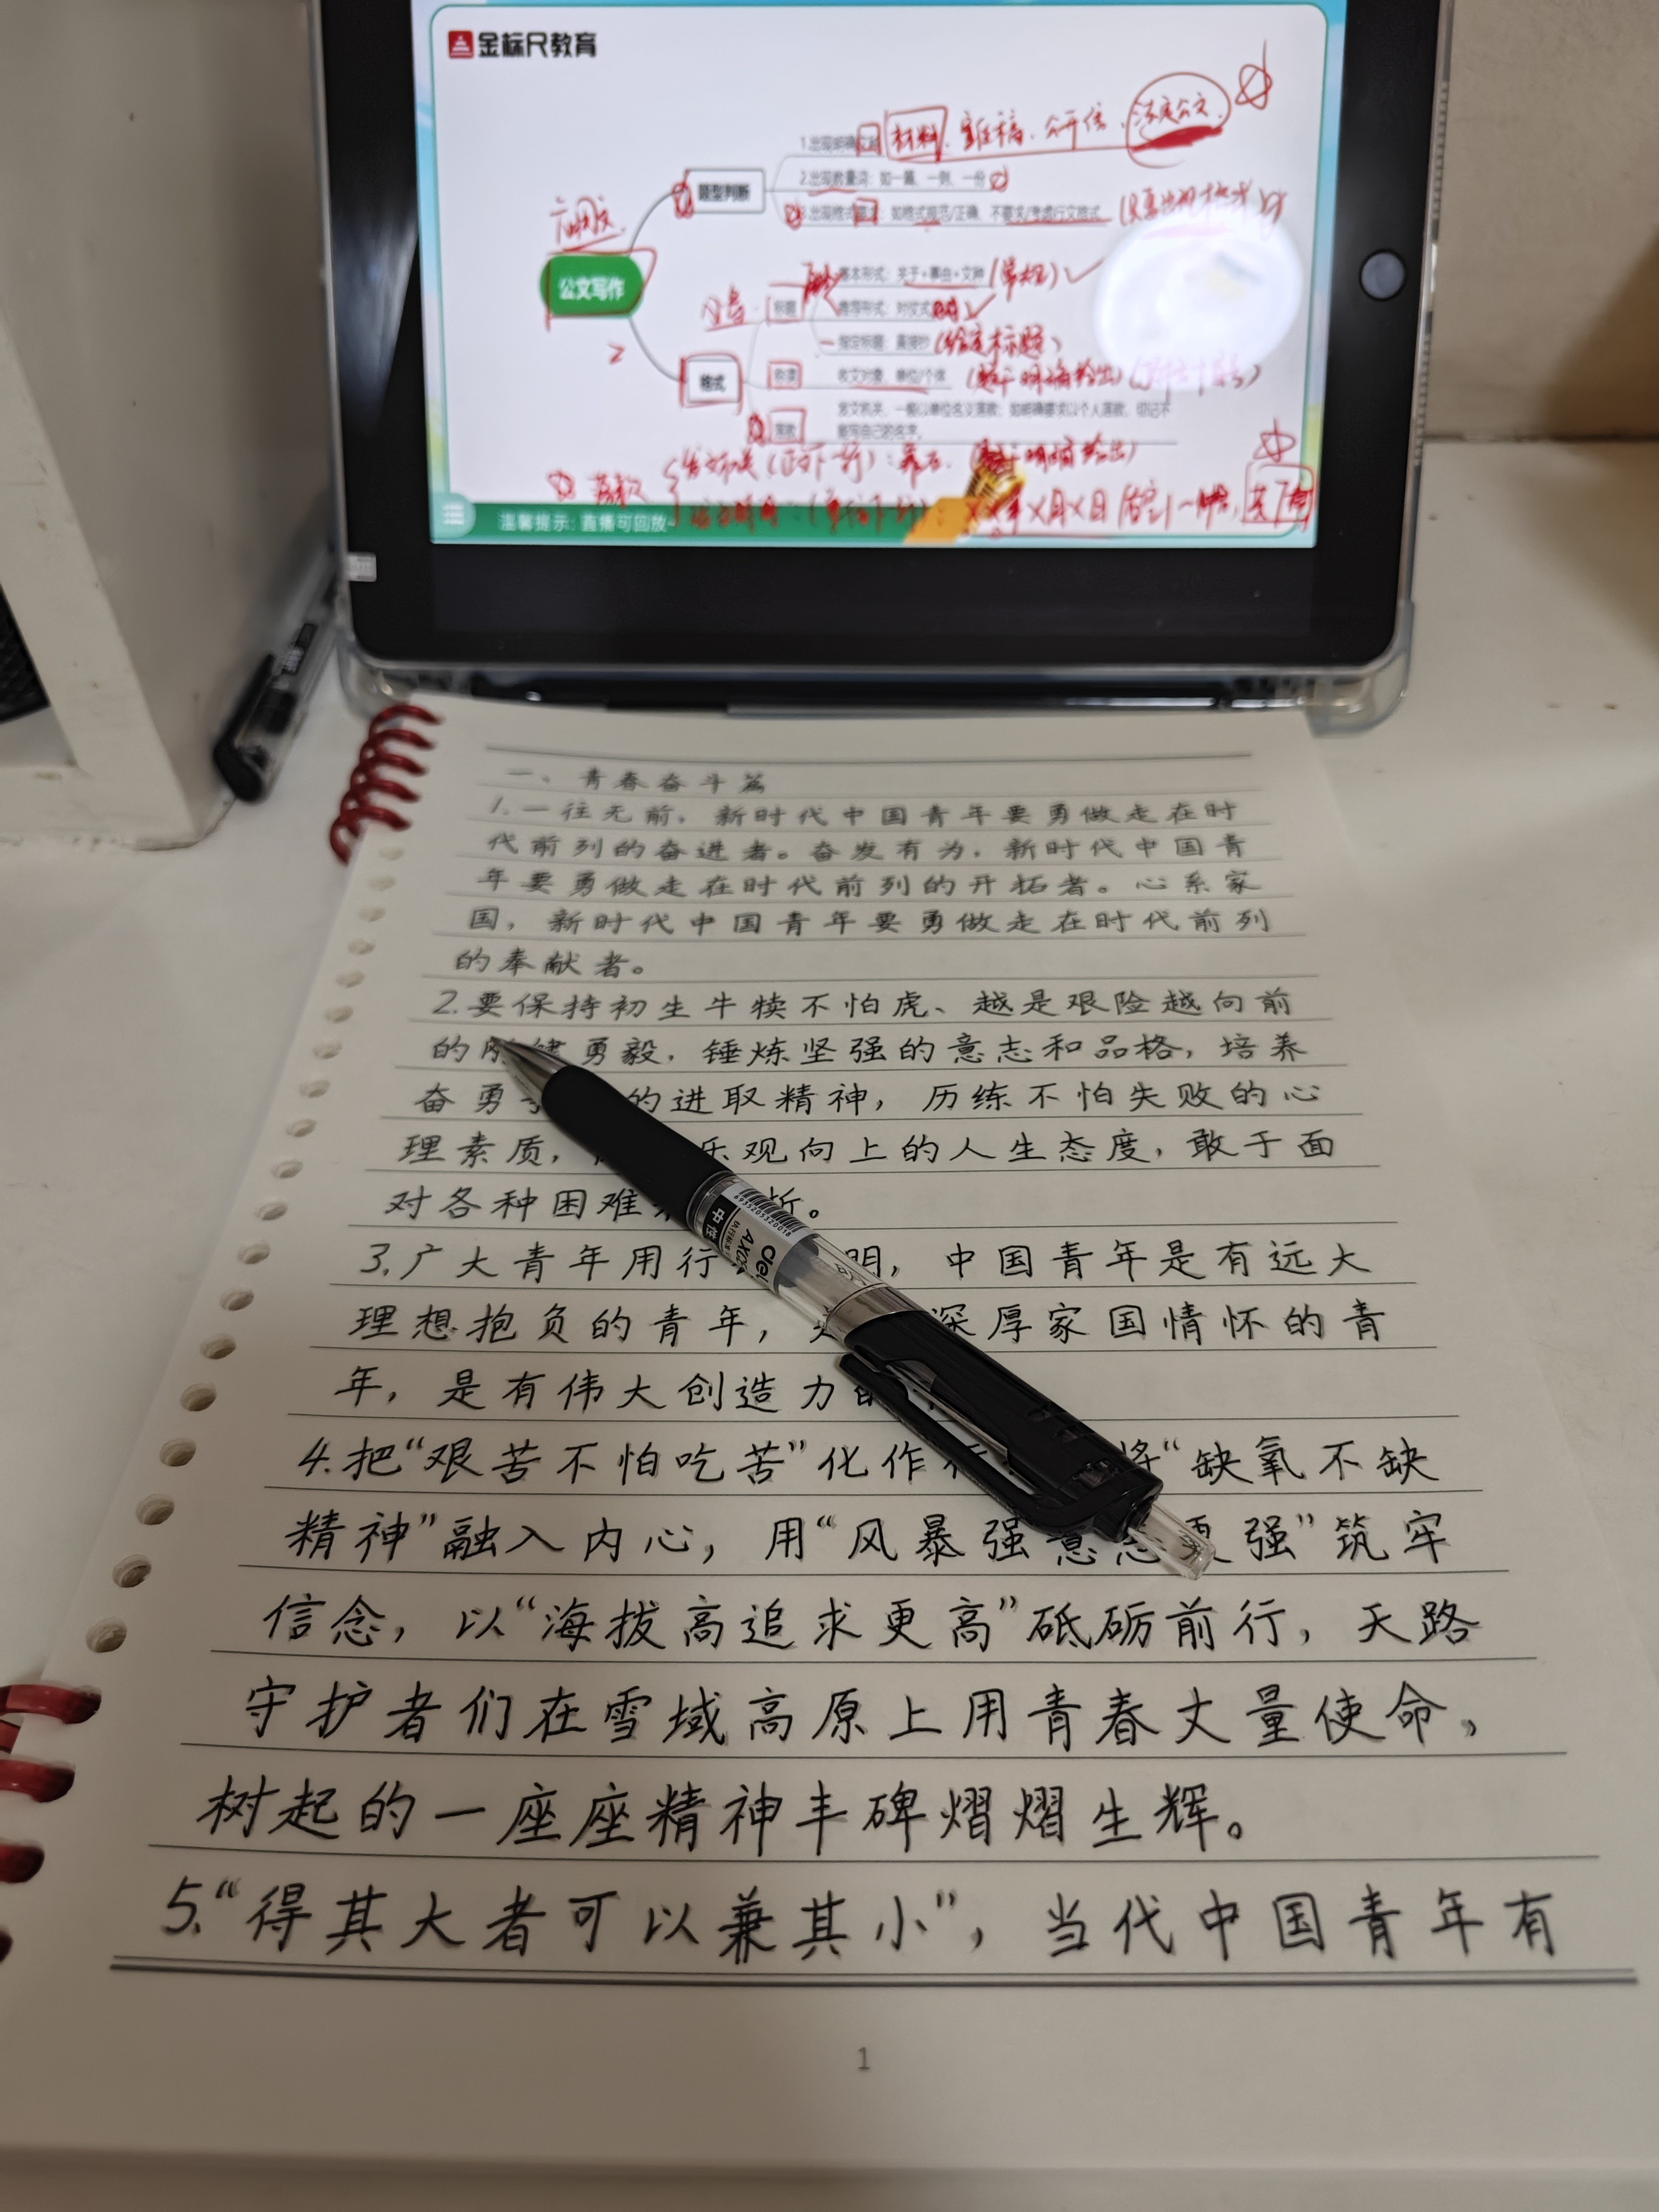 金标尺教育
材料、宣传稿、公开信、法定公文
题型判断
2.出现数量词：如一篇、一则、一份
如格式规范/正确、不要求/考虑行文格式
应用文
公文写作
基本形式：关于+事由+文种
标题
推荐形式：对仗式
指定标题：直接抄（给定标题）
格式
收文对象，单位/个体
发文机关，一般以单位名义落款；如明确要求以个人落款，切记不
能写自己的名字。
落款
温馨提示：直播可回放~
一、青春奋斗篇
1.一往无前，新时代中国青年要勇做走在时
代前列的奋进者。奋发有为，新时代中国青
年要勇做走在时代前列的开拓者。心系家
国，新时代中国青年要勇做走在时代前列
的奉献者。
2.要保持初生牛犊不怕虎、越是艰险越向前
的 勇毅，锤炼坚强的意志和品格，培养
奋勇 的进取精神，历练不怕失败的心
理素质， 乐观向上的人生态度，敢于面
对各种困难 折。
3.广大青年用行 明，中国青年是有远大
理想抱负的青年， 深厚家国情怀的青
年，是有伟大创造力
4.把“艰苦不怕吃苦”化作行 将“缺氧不缺
精神”融入内心，用“风暴强意志更强”筑牢
信念，以“海拔高追求更高”砥砺前行，天路
守护者们在雪域高原上用青春丈量使命，
树起的一座座精神丰碑熠熠生辉。
5.“得其大者可以兼其小”，当代中国青年有
1
deli
6935205320018